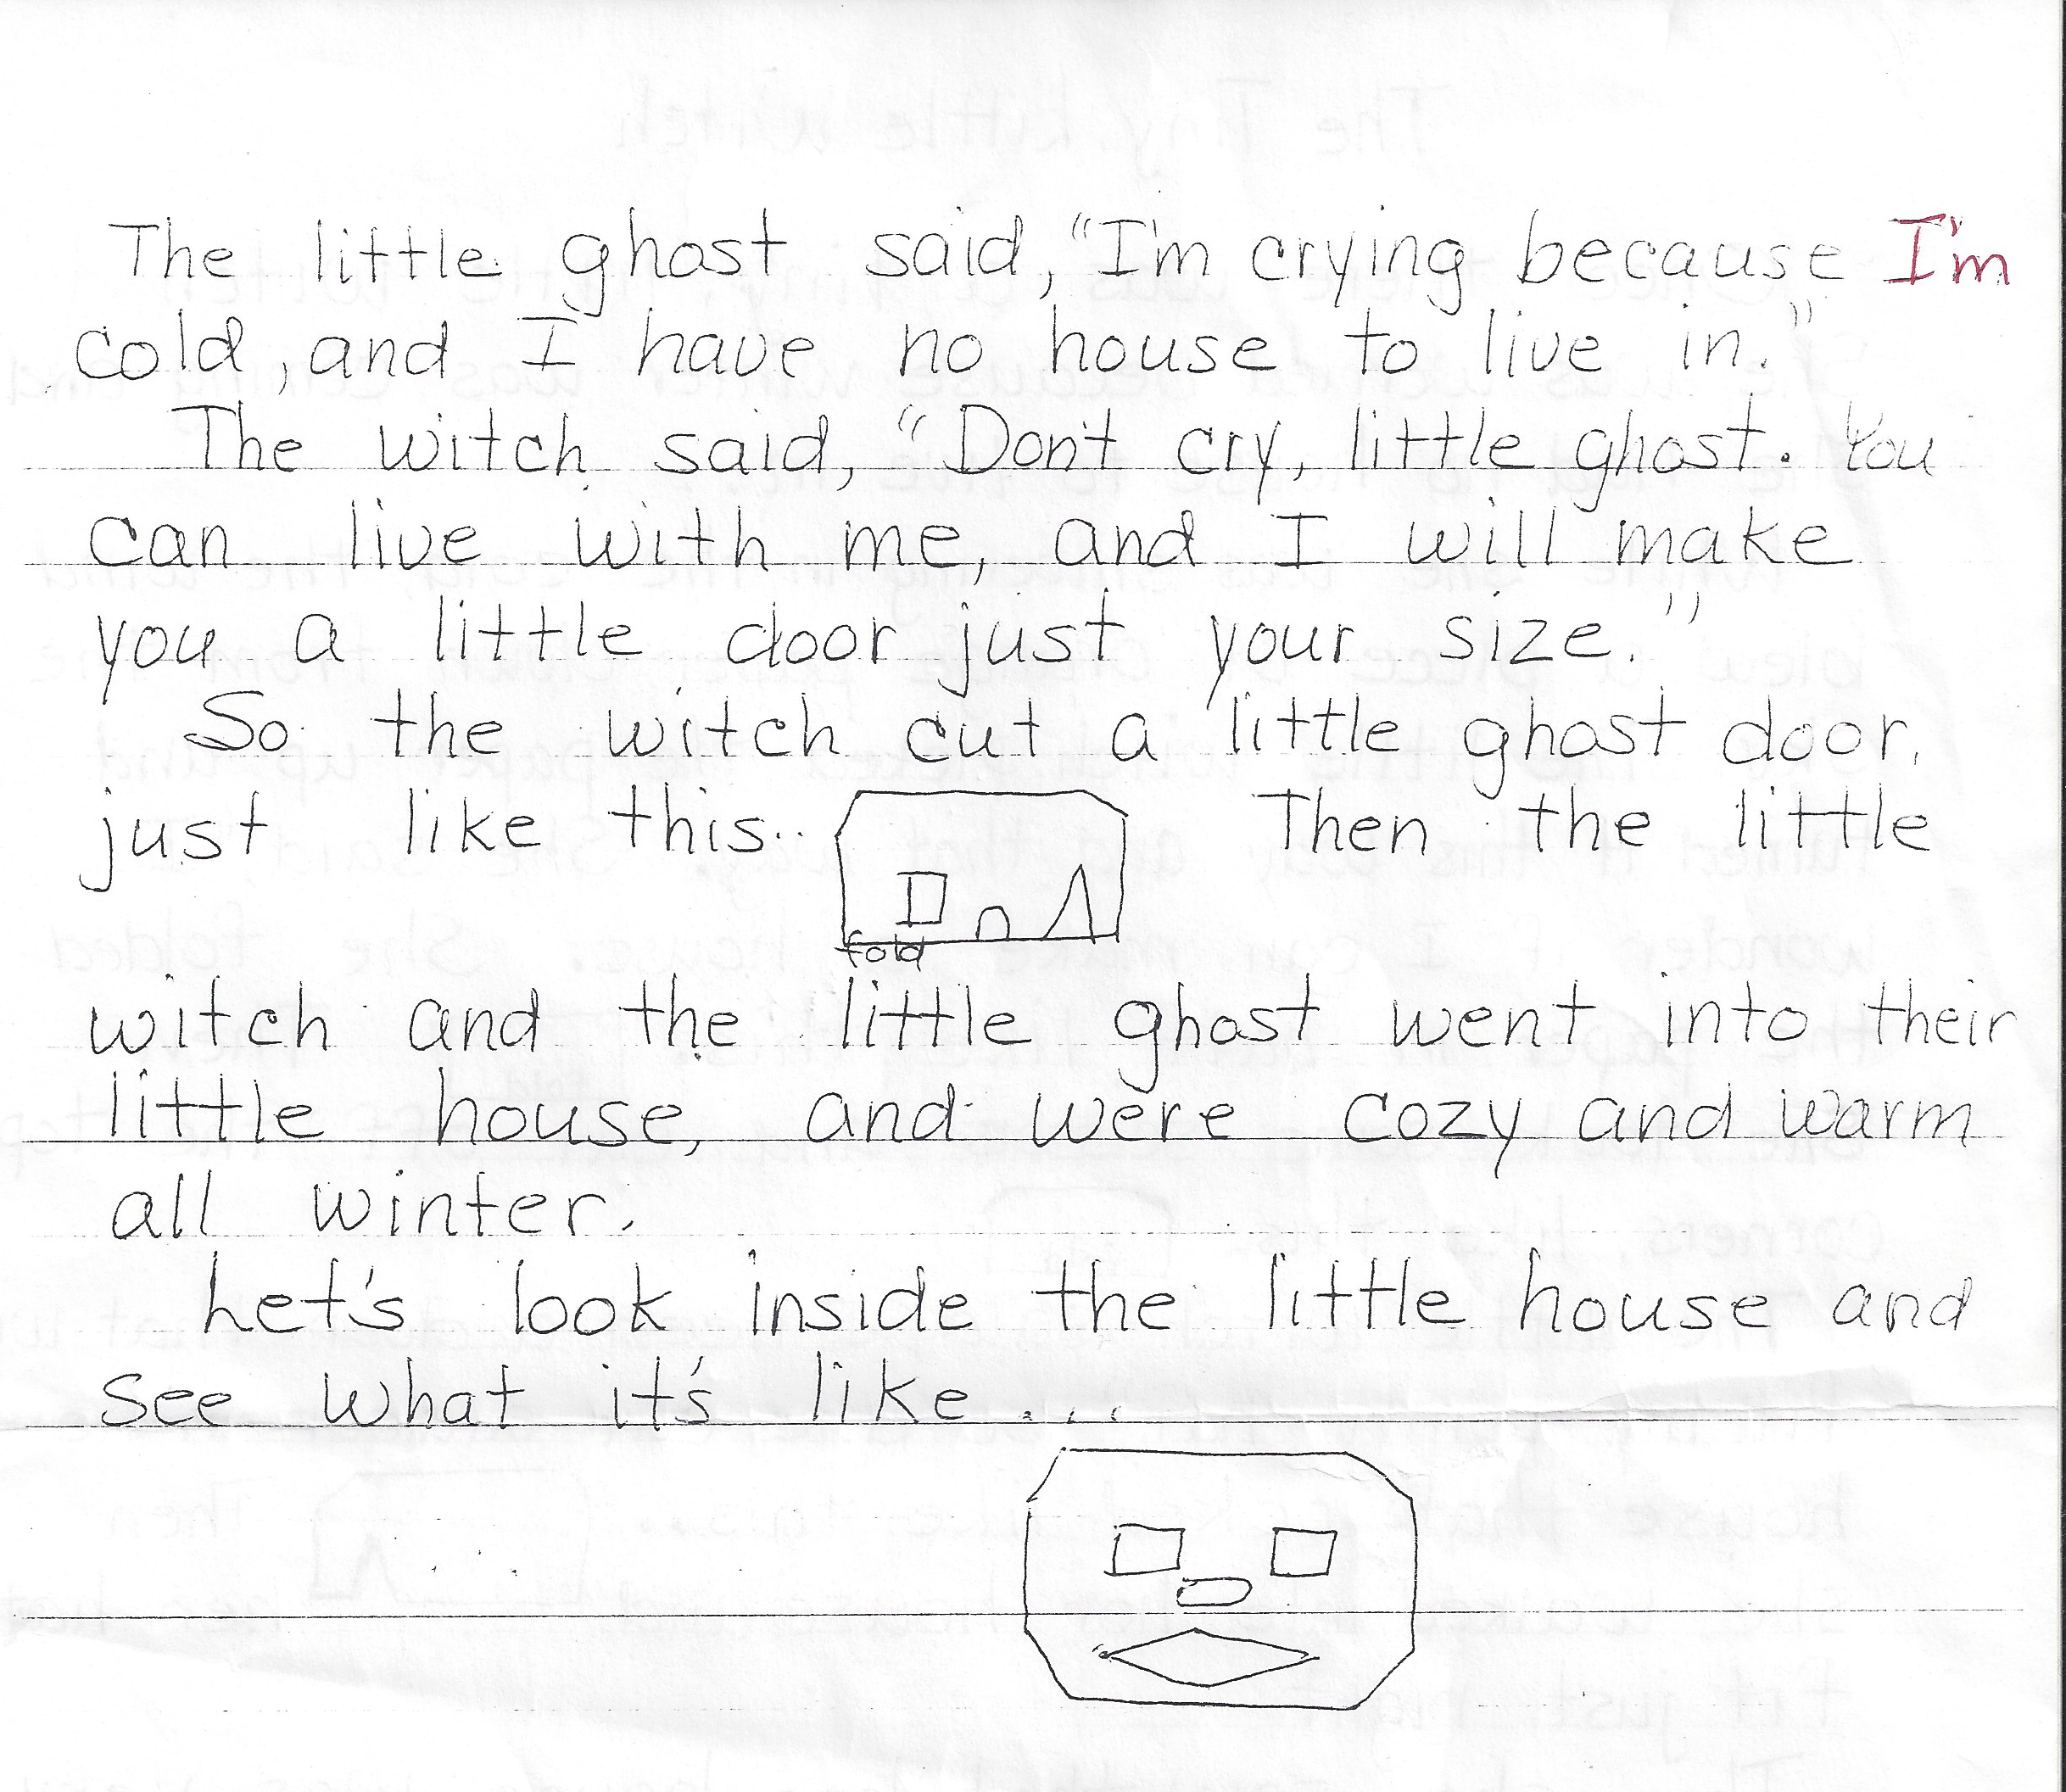 The little ghost said, "I'm crying because I'm
cold, and I have no house to live in."
The witch said, "Don't cry, little ghost. You
can live with me, and I will make
you a little door just your size."
So the witch cut a little ghost door,
just like this.. Then the little
fold
witch and the little ghost went into their
little house, and were cozy and warm
all winter.
Let's look inside the little house and
see what it's like...